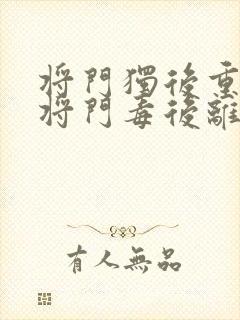 將門獨後重
將門毒後離
有人無品